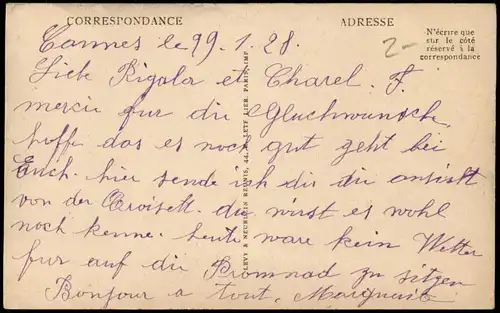 CORRESPONDANCE
ADRESSE
N'écrire que
sur le côté
réservé à la
correspondance
2-
Cannes le 29.1.28.
Lieb Rigala et Charel. F.
merci fur die Gluchwunsche,
hoffe das es noch gut geht bei
Euch. hier sende ich dir die ansikt
von der Croisett. du wirst es wohl
noch kenne. heute ware kein Wetter
fur auf die Promnad zu sitzen
Bonjour a tout, Marguerit
LEVY & NEURDEIN REUNIS, 44, R. LETELLIER, PARIS. IMP.